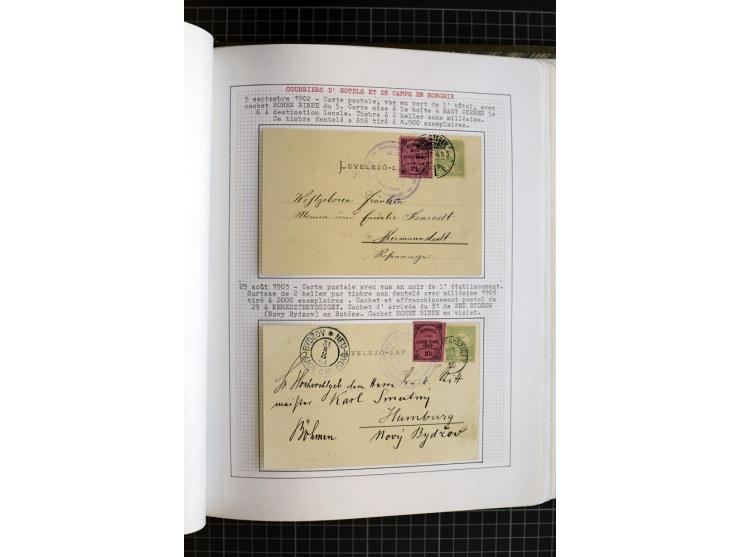 COURRIERS D' HOTELS ET DE CAMPS EN HONGRIE
5 septembre 1902 - Carte postale, vue en vert de l' hôtel, avec
cachet HOHEN RINNE du 5. Carte mise à la boîte à NAGY SZEBEN le
6 à destination locale. Timbre à 2 heller sans millésime.
Ce timbre dentelé a été tiré à 4.900 exemplaires.
LEVELEZŐ-LAP
Wohlgeboren Fräulein
Minna und Konradt
Hermannstadt
29 août 1903 - Carte postale avec vue en noir de l' établissement.
Surtaxe de 2 heller par timbre non dentelé avec millésime 1903
tiré à 2000 exemplaires . Cachet et affranchissement postal du
29 à KERESZTENYSZIGET. Cachet d' arrivée du 31 de NEU BYDZOW
(Novy Bydzov) en Bohême. Cachet HOHEN RINNE en violet.
LEVELEZŐ-LAP
Sr Hochwohlgeb dem Herrn
meister Karl Smutny
Humburg
Böhmen Nový Bydžov